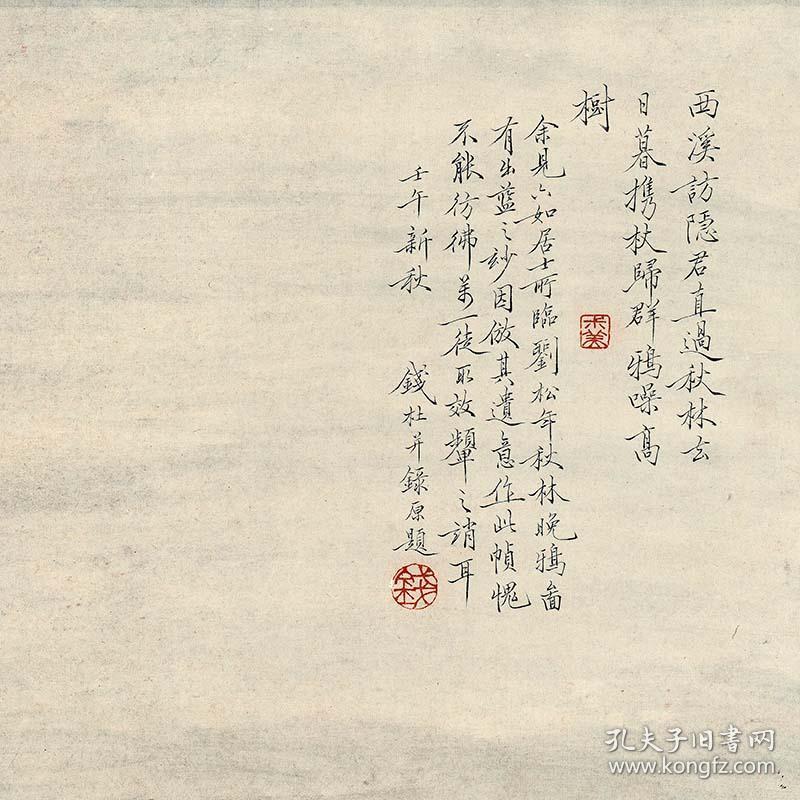 西溪訪隱君直過秋林去
日暮携杖歸群鴉噪高
樹
余見六如居士所臨劉松年秋林晚鴉啚
有出藍之妙因倣其遺意作此幀愧
不能彷彿萬一徒取效顰之誚耳
壬午新秋 錢杜并錄原題
叔美
錢
孔夫子旧书网
www.kongfz.com